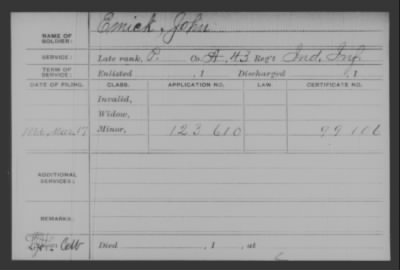 NAME OF SOLDIER: Emick, John
SERVICE: Late rank, P. Co. A, 43 Reg't Ind. Inf.
TERM OF SERVICE: Enlisted , 1 Discharged , 1
DATE OF FILING. CLASS. APPLICATION NO. LAW. CERTIFICATE NO.
Invalid,
Widow,
1866, Mar. 17 Minor, 123 610 99 106
ADDITIONAL SERVICES:
REMARKS:
Died , 1 , at